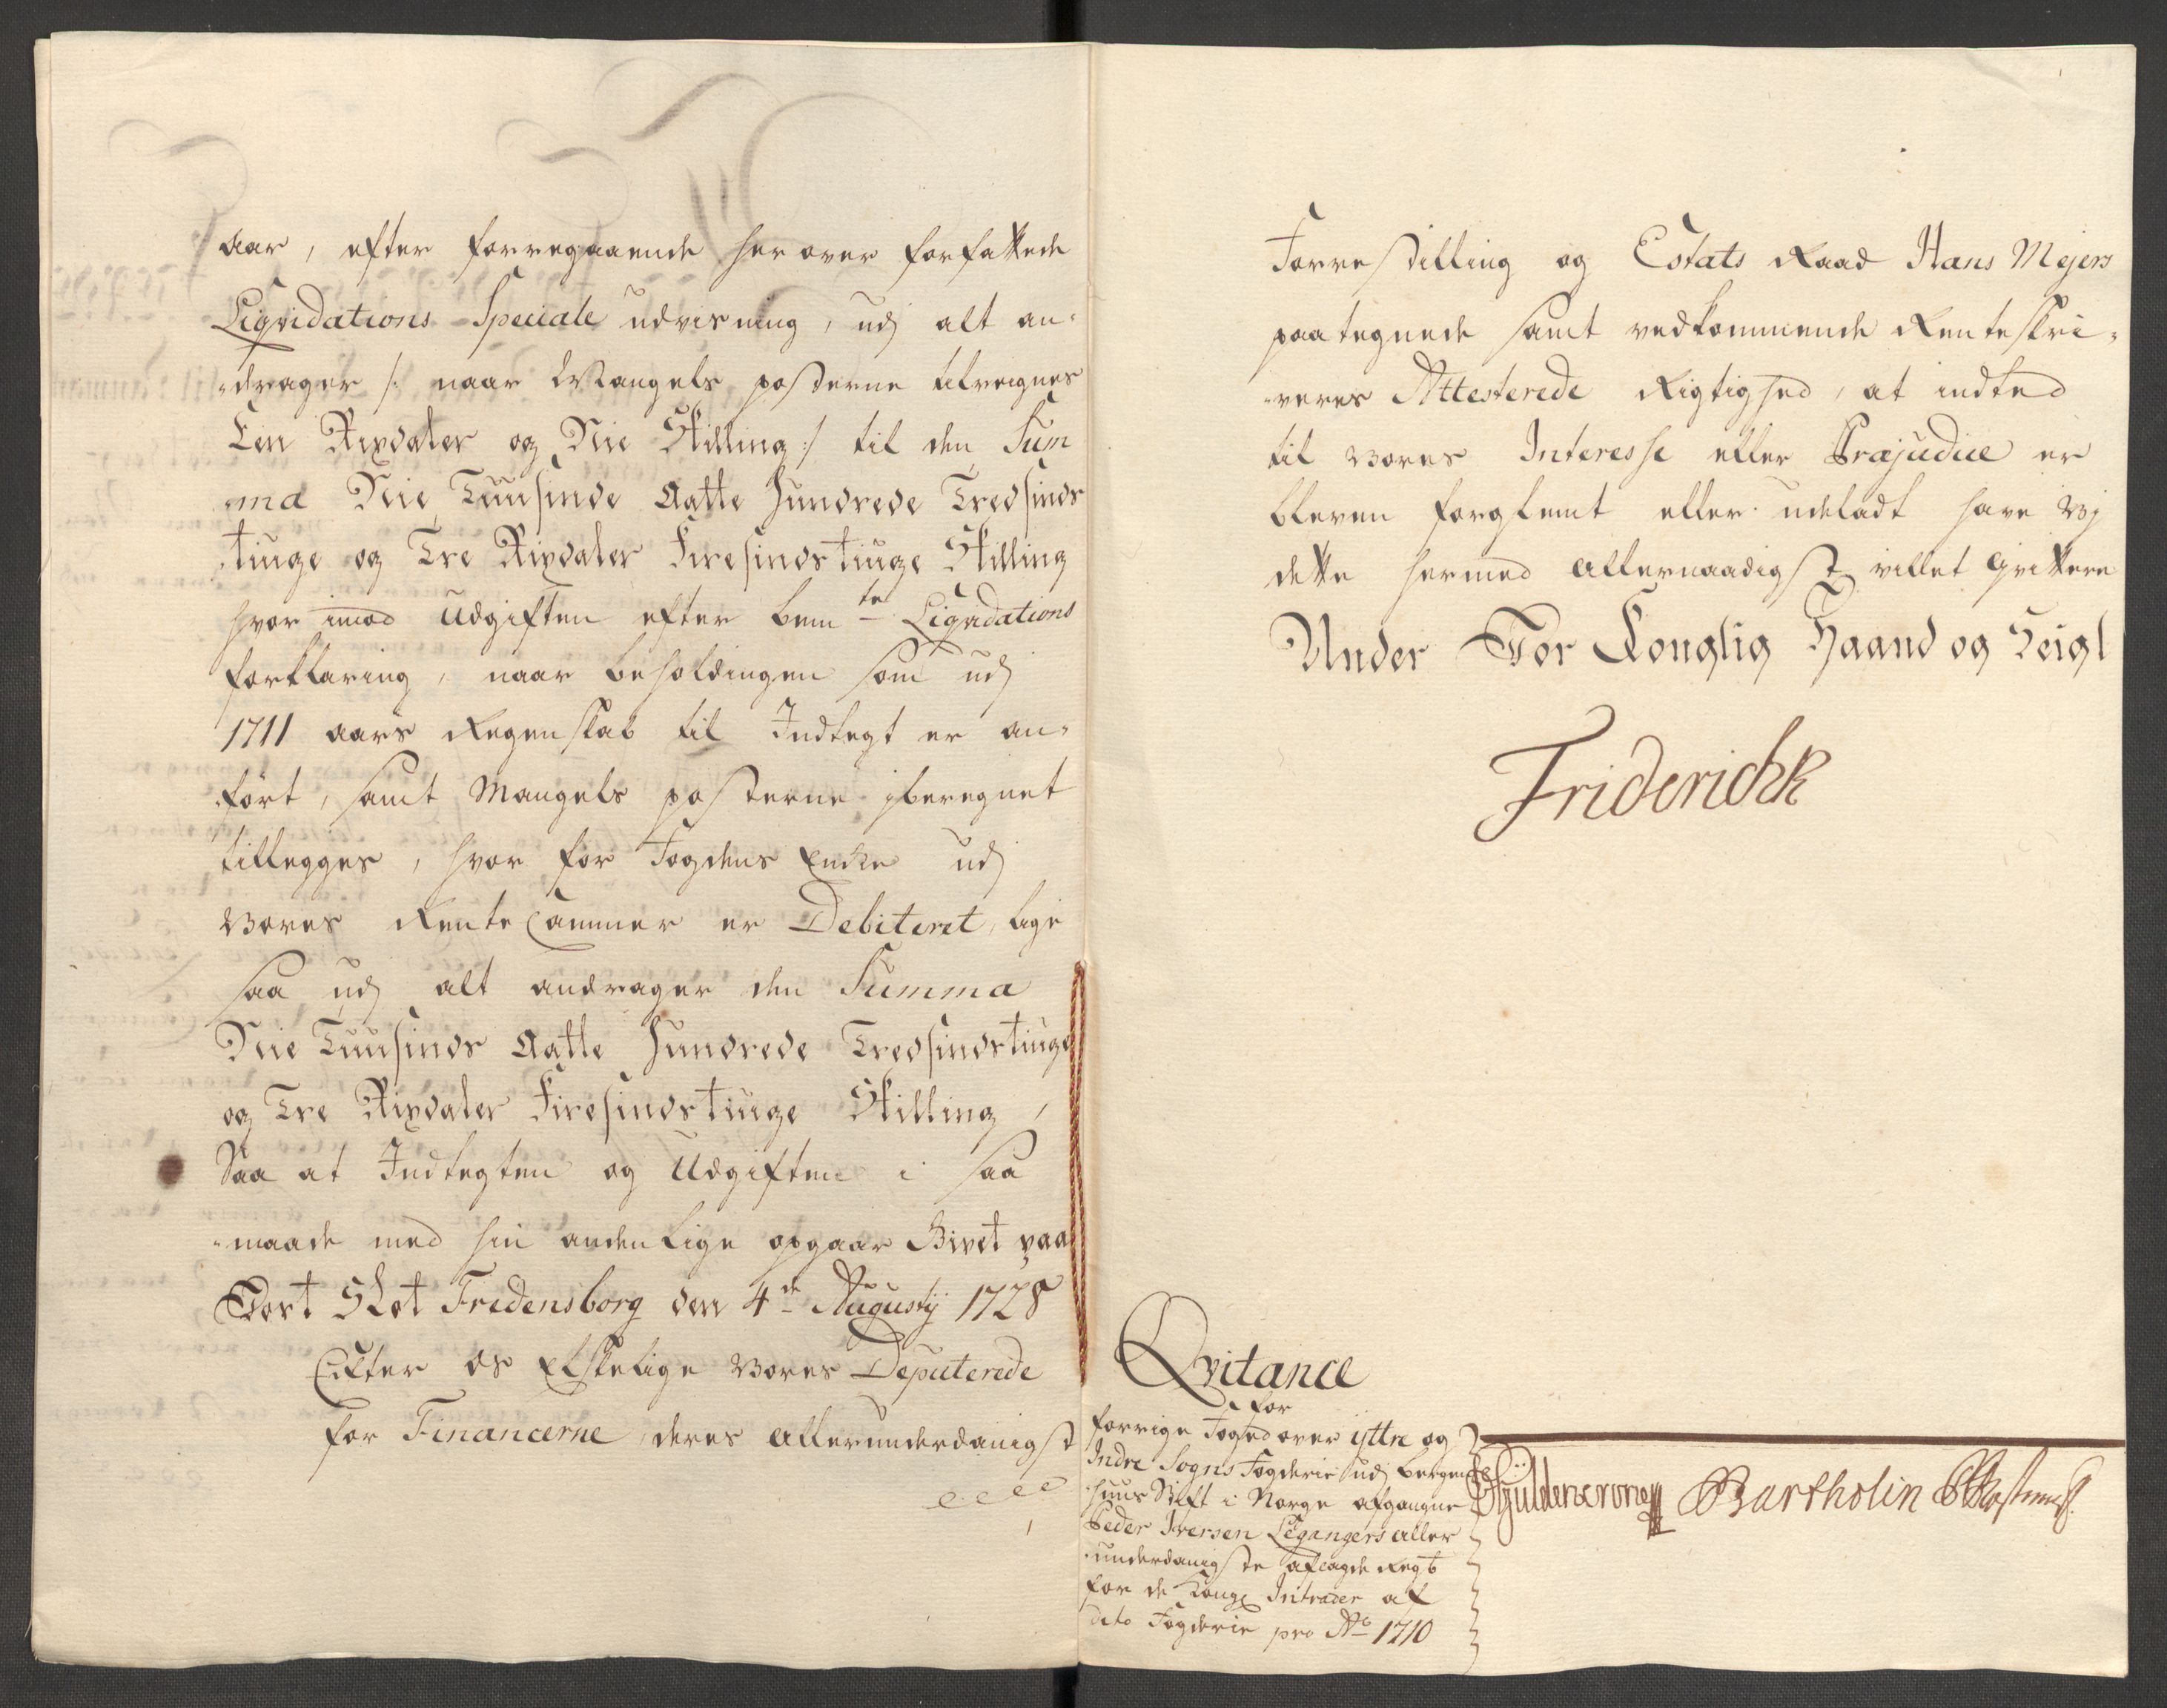 aar, efter forregaaende her over forfattede
Liqvidations Speciale udvisning, udj alt an-
-drager /: naar Mangels posterne tilreignes
Een Rixdaler og Nie Skilling :/ til den Sum
-ma Nie Tuusinde Aatte Hundrede Tredsinds
tiuge og Tre Rixdaler Firesindstiuge Skilling
hvor imod Udgiften efter bemte Liqvidations
forklaring, naar beholdingen som udj
1711 aars Regenskab til Indtegt er an-
ført, samt Mangels posterne iberegnet
tillegges, hvor for Fogdens Encke udj
Vores Rente Cammer er Debiteret, lige
saa udj alt andrager den Summa
Nie Tuusinds Aatte Hundrede Tredsindstiuge
og Tre Rixdaler Firesindstiuge Skilling,
Saa at Indtegten og Udgiften i saa
-maade med hin anden lige opgaar Givet paa
Vort Slot Fredensborg den 4de Augustij 1728
Efter os Elskelige Vores Deputerede
for Financerne, deres allerunderdanigst
Forrestilling og Estats Raad Hans Mejers
paategnede samt vedkommende Renteskri-
-veres Attesterede Rigtighed, at indted
til Vores Interesse eller Præjudice er
bleven forglemt eller udeladt have Vj
dette hermed allernaadigst villet qvittere
Under Vor Konglig Haand og Seigl
FriderichR
Qvitance
for
forrige Foged over ÿttre og
Indre Sogns Fogderie udj Bergen
huus Stift i Norge afgangne
Peder Iversen Legangers aller
-underdanigste aflagde Regb
for de Kongl Intrader af
dito Fogderie pro Ao 1710
Güldencrone Bartholin